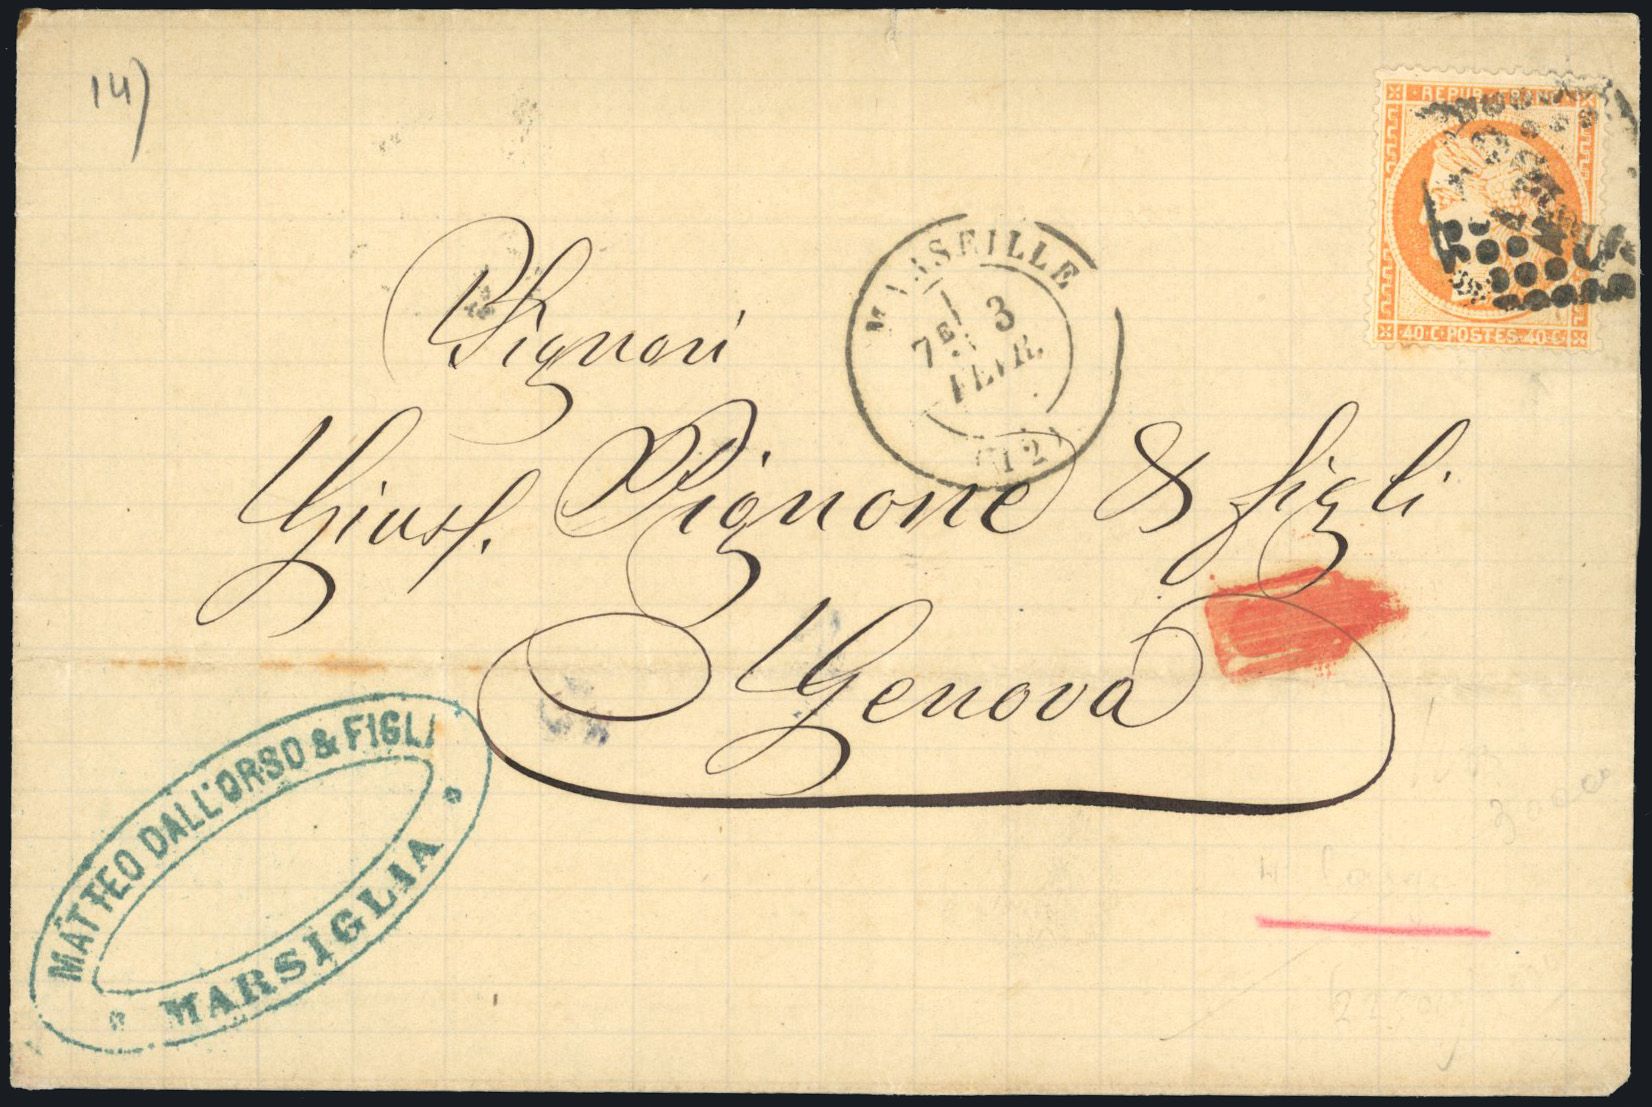 14)
REPUB FRANC
40·C·POSTES·40·C
MARSEILLE
7E
3
FEVR.
(12)
Signori
Gius. Pignone & figli
Genova
MATTEO DALL'ORSO & FIGLI
MARSIGLIA